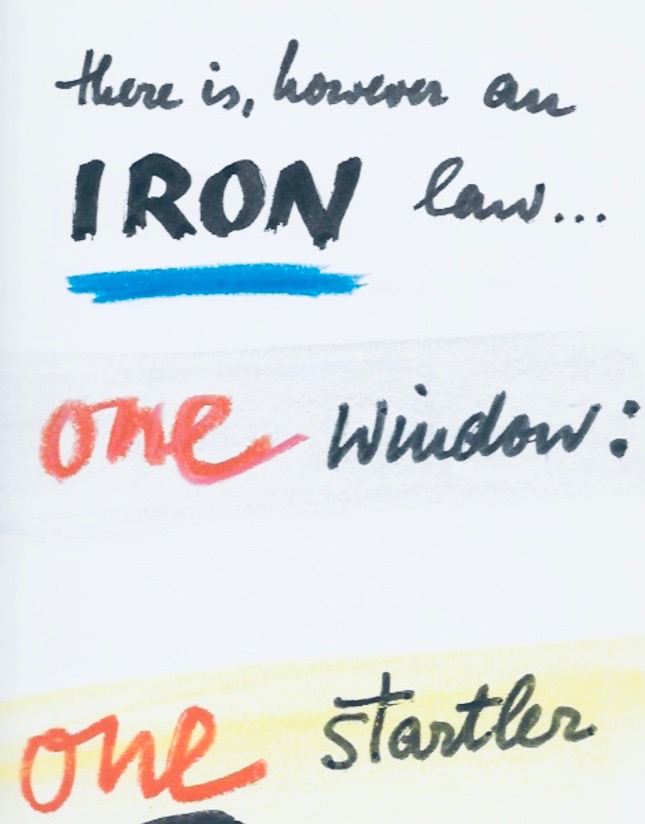 there is, however an
IRON law...
one window:
one startler